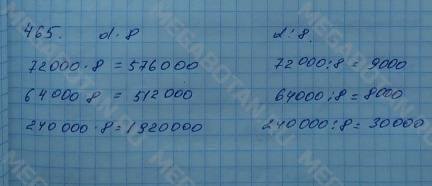 465. d·8 d:8
72000·8 = 576000 72000:8 = 9000
64000·8 = 512000 64000:8 = 8000
240 000·8 = 1920000 240 000:8 = 30000